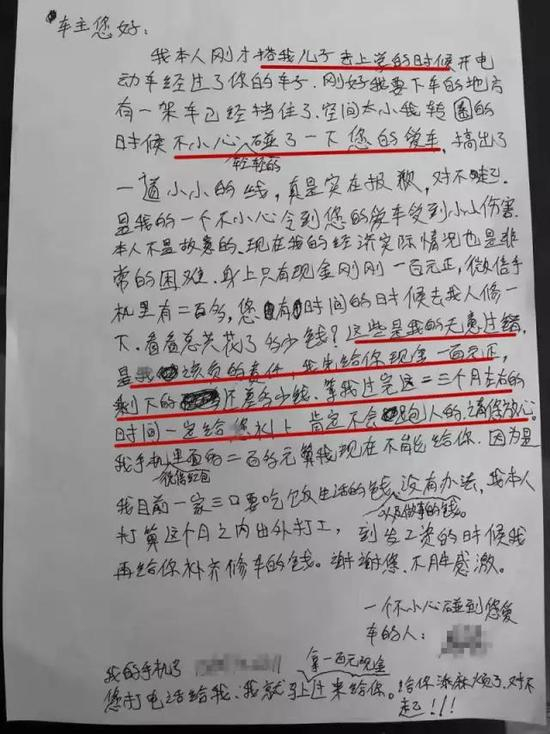 车主您好:
我本人刚才搭我儿子去上学的时候开电
动车经过了你的车子.刚好我要下车的地方
有一架车已经挡住了.空间太小我转圈的
时候不小心轻轻的碰了一下您的爱车,搞出了
一道小小的线,真是实在报歉,对不起.
是我的一个不小心令到您的爱车受到小小伤害.
本人不是故意的.现在我的经济实际情况也是非
常的困难.身上只有现金刚刚一百元正,微信手
机里有二百多,您有时间的时候去找人修一
下.看看总共花了多少钱?这些是我的无意过错,
是我该负的责任,我先给你现金一百元正,
剩下的还差多少钱.等我过完这二三个月左右的
时间一定给你补上肯定不会跑人的.请你放心。
我手机里面的微信红包二百多元算我现在不能给你.因为是
我目前一家三口要吃饭生活的钱以及做事的钱。没有办法,我本人
打算这个月之内出外打工,到发工资的时候我
再给你补齐修车的钱。谢谢您.不胜感激。
一个不小心碰到您爱
车的人:
我的手机号
您打电话给我.我就拿一百元现金马上过来给你。给你添麻烦了.对不
起!!!